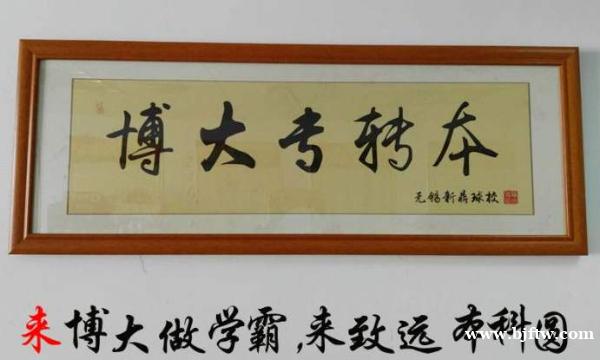 博大专转本
无锡新鼎球校
来博大做学霸,来致远 本科圆
www.bjftw.com